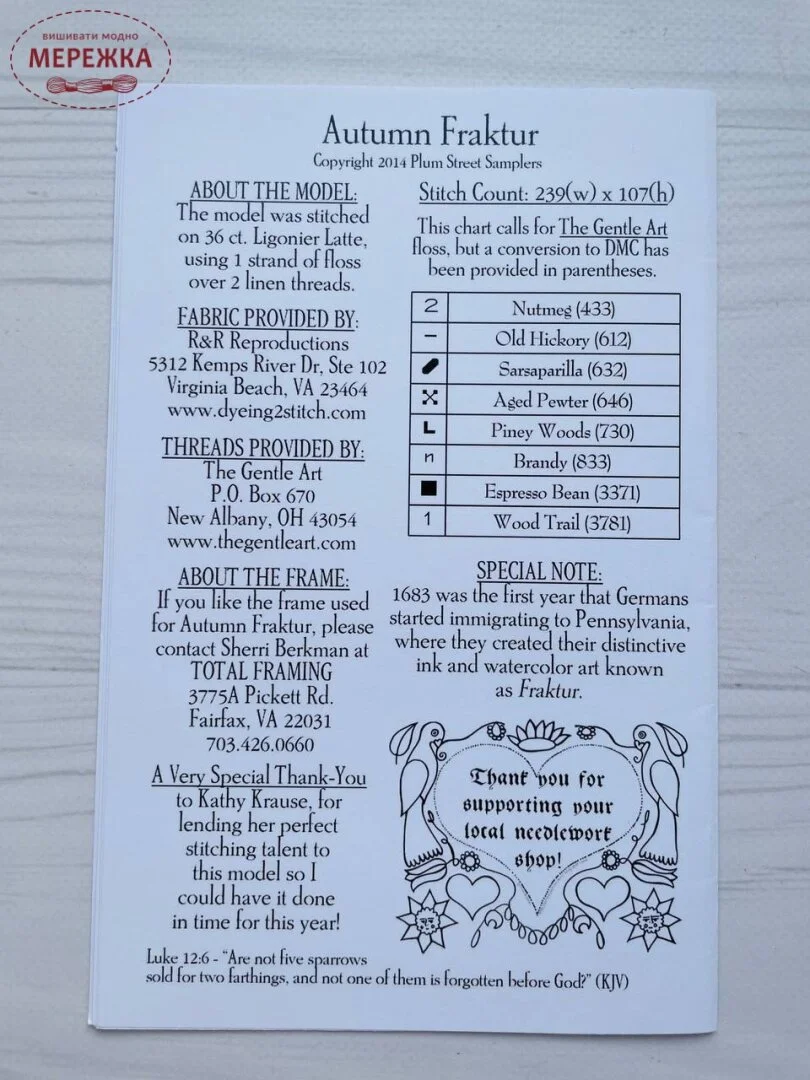 вишивати модно
МЕРЕЖКА
Autumn Fraktur
Copyright 2014 Plum Street Samplers
ABOUT THE MODEL:
The model was stitched
on 36 ct. Ligonier Latte,
using 1 strand of floss
over 2 linen threads.
FABRIC PROVIDED BY:
R&R Reproductions
5312 Kemps River Dr, Ste 102
Virginia Beach, VA 23464
www.dyeing2stitch.com
THREADS PROVIDED BY:
The Gentle Art
P.O. Box 670
New Albany, OH 43054
www.thegentleart.com
ABOUT THE FRAME:
If you like the frame used
for Autumn Fraktur, please
contact Sherri Berkman at
TOTAL FRAMING
3775A Pickett Rd.
Fairfax, VA 22031
703.426.0660
A Very Special Thank-You
to Kathy Krause, for
lending her perfect
stitching talent to
this model so I
could have it done
in time for this year!
Stitch Count: 239(w) x 107(h)
This chart calls for The Gentle Art
floss, but a conversion to DMC has
been provided in parentheses.
2 Nutmeg (433)
– Old Hickory (612)
Sarsaparilla (632)
Aged Pewter (646)
L Piney Woods (730)
n Brandy (833)
■ Espresso Bean (3371)
1 Wood Trail (3781)
SPECIAL NOTE:
1683 was the first year that Germans
started immigrating to Pennsylvania,
where they created their distinctive
ink and watercolor art known
as Fraktur.
Thank you for
supporting your
local needlework
shop!
Luke 12:6 - "Are not five sparrows
sold for two farthings, and not one of them is forgotten before God?" (KJV)